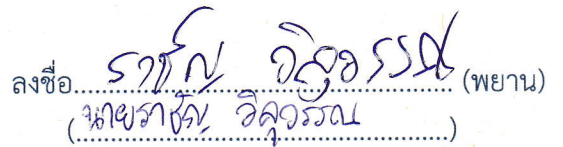 ลงชื่อ ราชัญ วิสุวรรณ (พยาน)
(นายราชัญ วิสุวรรณ)